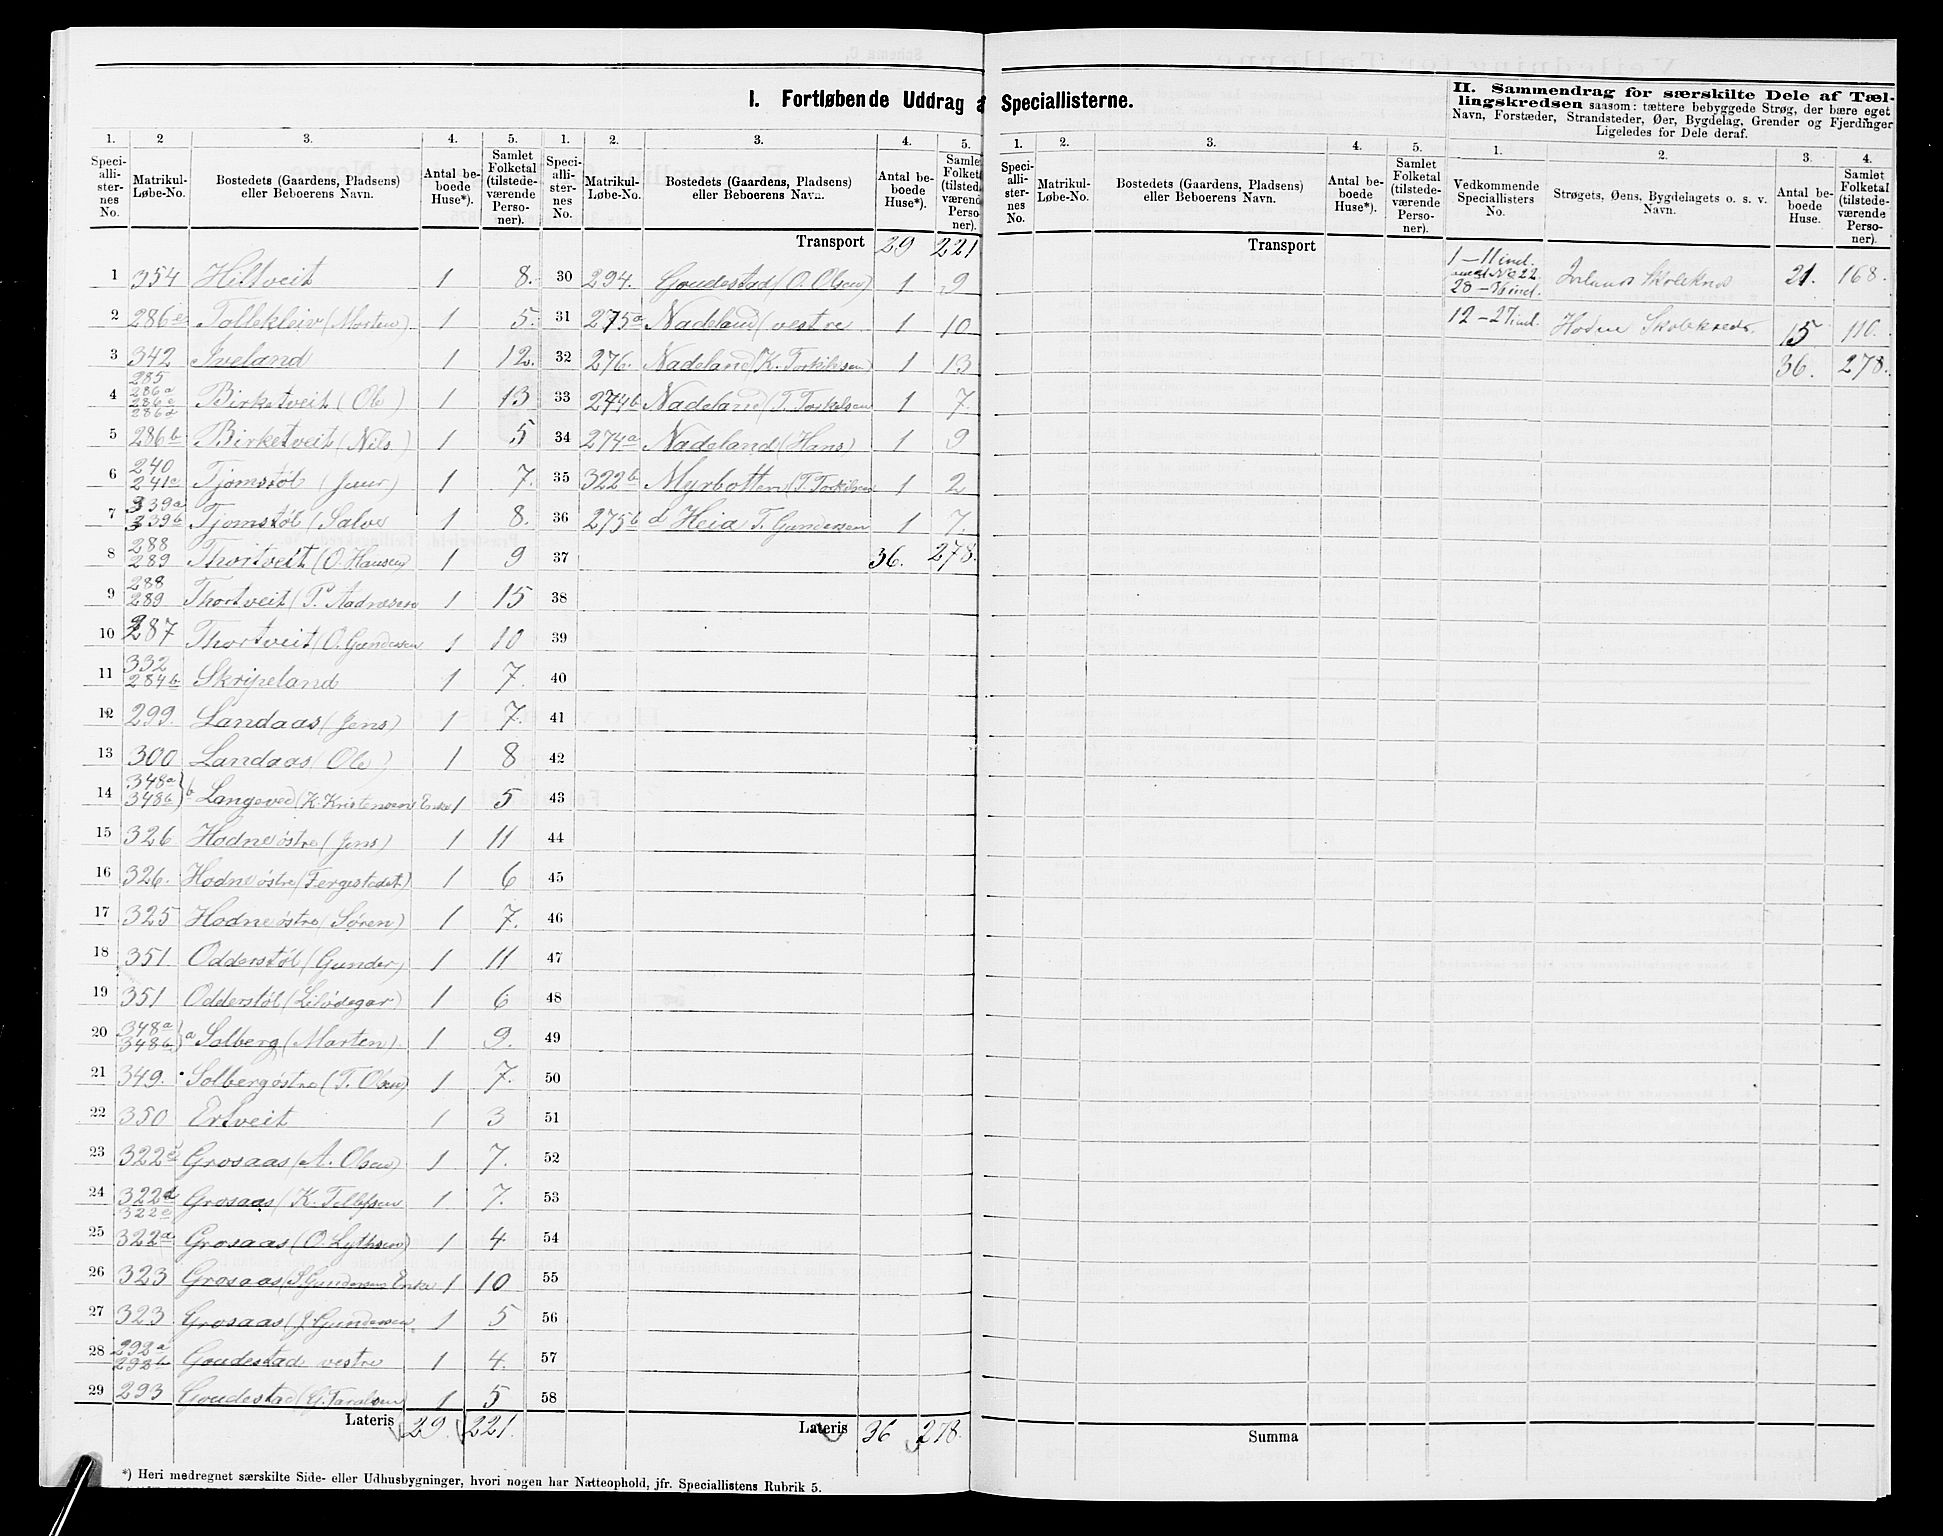 I. Fortløbende Uddrag a
1. 2 3. 4. 5.
Speciallisternes No. Matrikul-Løbe-No. Bostedets (Gaardens, Pladsens) eller Beboerens Navn. Antal beboede Huse*). Samlet Folketal (tilstedeværende Personer).
1 354 Hiltveit 1 8.
2 286e Tollekleiv (Morten) 1 5.
3 342 Iveland 1 12.
4 285 286a 286c 286d Birketveit (Ole) 1 13
5 286b Birketveit (Nils) 1 5
6 240 241c Tjomstøl 1 7.
7 339a 339b Tjomstøl (Salve 1 8.
8 288 289 Thortveit (O. Hansen) 1 9
9 288 289 Thortveit (T. Aadnesen 1 15
10 287 Thortveit (O. Gundersen 1 10
11 332 284b Skripeland 1 7.
12 299. Landaas (Jens) 1 7.
13 300 Landaas (Ole) 1 8
14 348a 348b } b Langeved (K. Kristensens Enke 1 5
15 326 Hodne østre (Jens) 1 11
16 326. Hodne østre (Fergestedet) 1 6
17 325 Hodne østre (Søren) 1 7.
18 351 Odderstøl (Gunder) 1 11
19 351 Odderstøl (Lilødegar) 1 6
20 348a 348b } a Solberg (Morten) 1 9.
21 349. Solberg østre (T. Olsen) 1 7.
22 350 Ertveit 1 3
23 322c Grosaas (A. Olsen) 1 7.
24 322d 322e Grosaas (K. Tellefsen 1 7.
25 322a Grosaas (O. Lythsen) 1 4
26 323 Grosaas (S Gundersens Enke 1 10
27 323 Grosaas (J Gundersen 1 5
28 292a 292b Goudestad vestre 1 4.
29 293 Goudestad (G. Taralsen) 1 5
Lateris 29. 221.
1. 2. 3. 4. 5.
Speciallisternes No. Matrikul-Løbe-No. Bostedets (Gaardens, Pladsens) eller Beboerens Navn. Antal beboede Huse*). Samle Folketal (tilsted værend Perso ner).
Transport 29 221
30 294. Goudestad (O. Olsen) 1 9
31 275a Nadeland (vestre 1 10
32 276. Nadeland (K. Torkilsen) 1 13
33 274b Nadeland (T. Torkelsen 1 7.
34 274a Nadeland (Hans) 1 9
35 322b Myrbotten (T. Torkilsen 1 2
36 275b d Heia T. Gundersen 1 7.
37 36. 278.
38
39
40
41
42
43
44
45
46
47
48
49
50
51
52
53
54
55
56
57
58
Lateris 36 278.
*) Heri medregnet særskilte Side- eller Udhusbygninger, hvori nogen har Natteophold, jfr. Speciallistens Rubrik 5.
Speciallisterne.
1. 2. 3. 4. 5.
Speciallisternes No. Matrikul-Løbe-No. Bostedets (Gaardens, Pladsens) eller Beboerens Navn. Antal beboede Huse*). Samlet Folketal (tilstedeværende Personer).
Transport
Summa
II. Sammendrag for særskilte Dele af Tællingskredsen saasom: tættere bebyggede Strøg, der bære eget Navn, Forstæder, Strandsteder, Øer, Bygdelag, Grender og Fjerdinger Ligeledes for Dele deraf.
1. 2. 3. 4.
Vedkommende Speciallisters No. Strøgets, Øens, Bygdelagets o. s. v. Navn. Antal beboede Huse. Samlet Folketal (tilstedeværende Personer).
1 – 11 incl. No 22. 28 – 36 incl. Ivelands Skolekreds 21. 168.
12 – 27 incl. Hodne Skolekreds. 15 110.
36. 278.